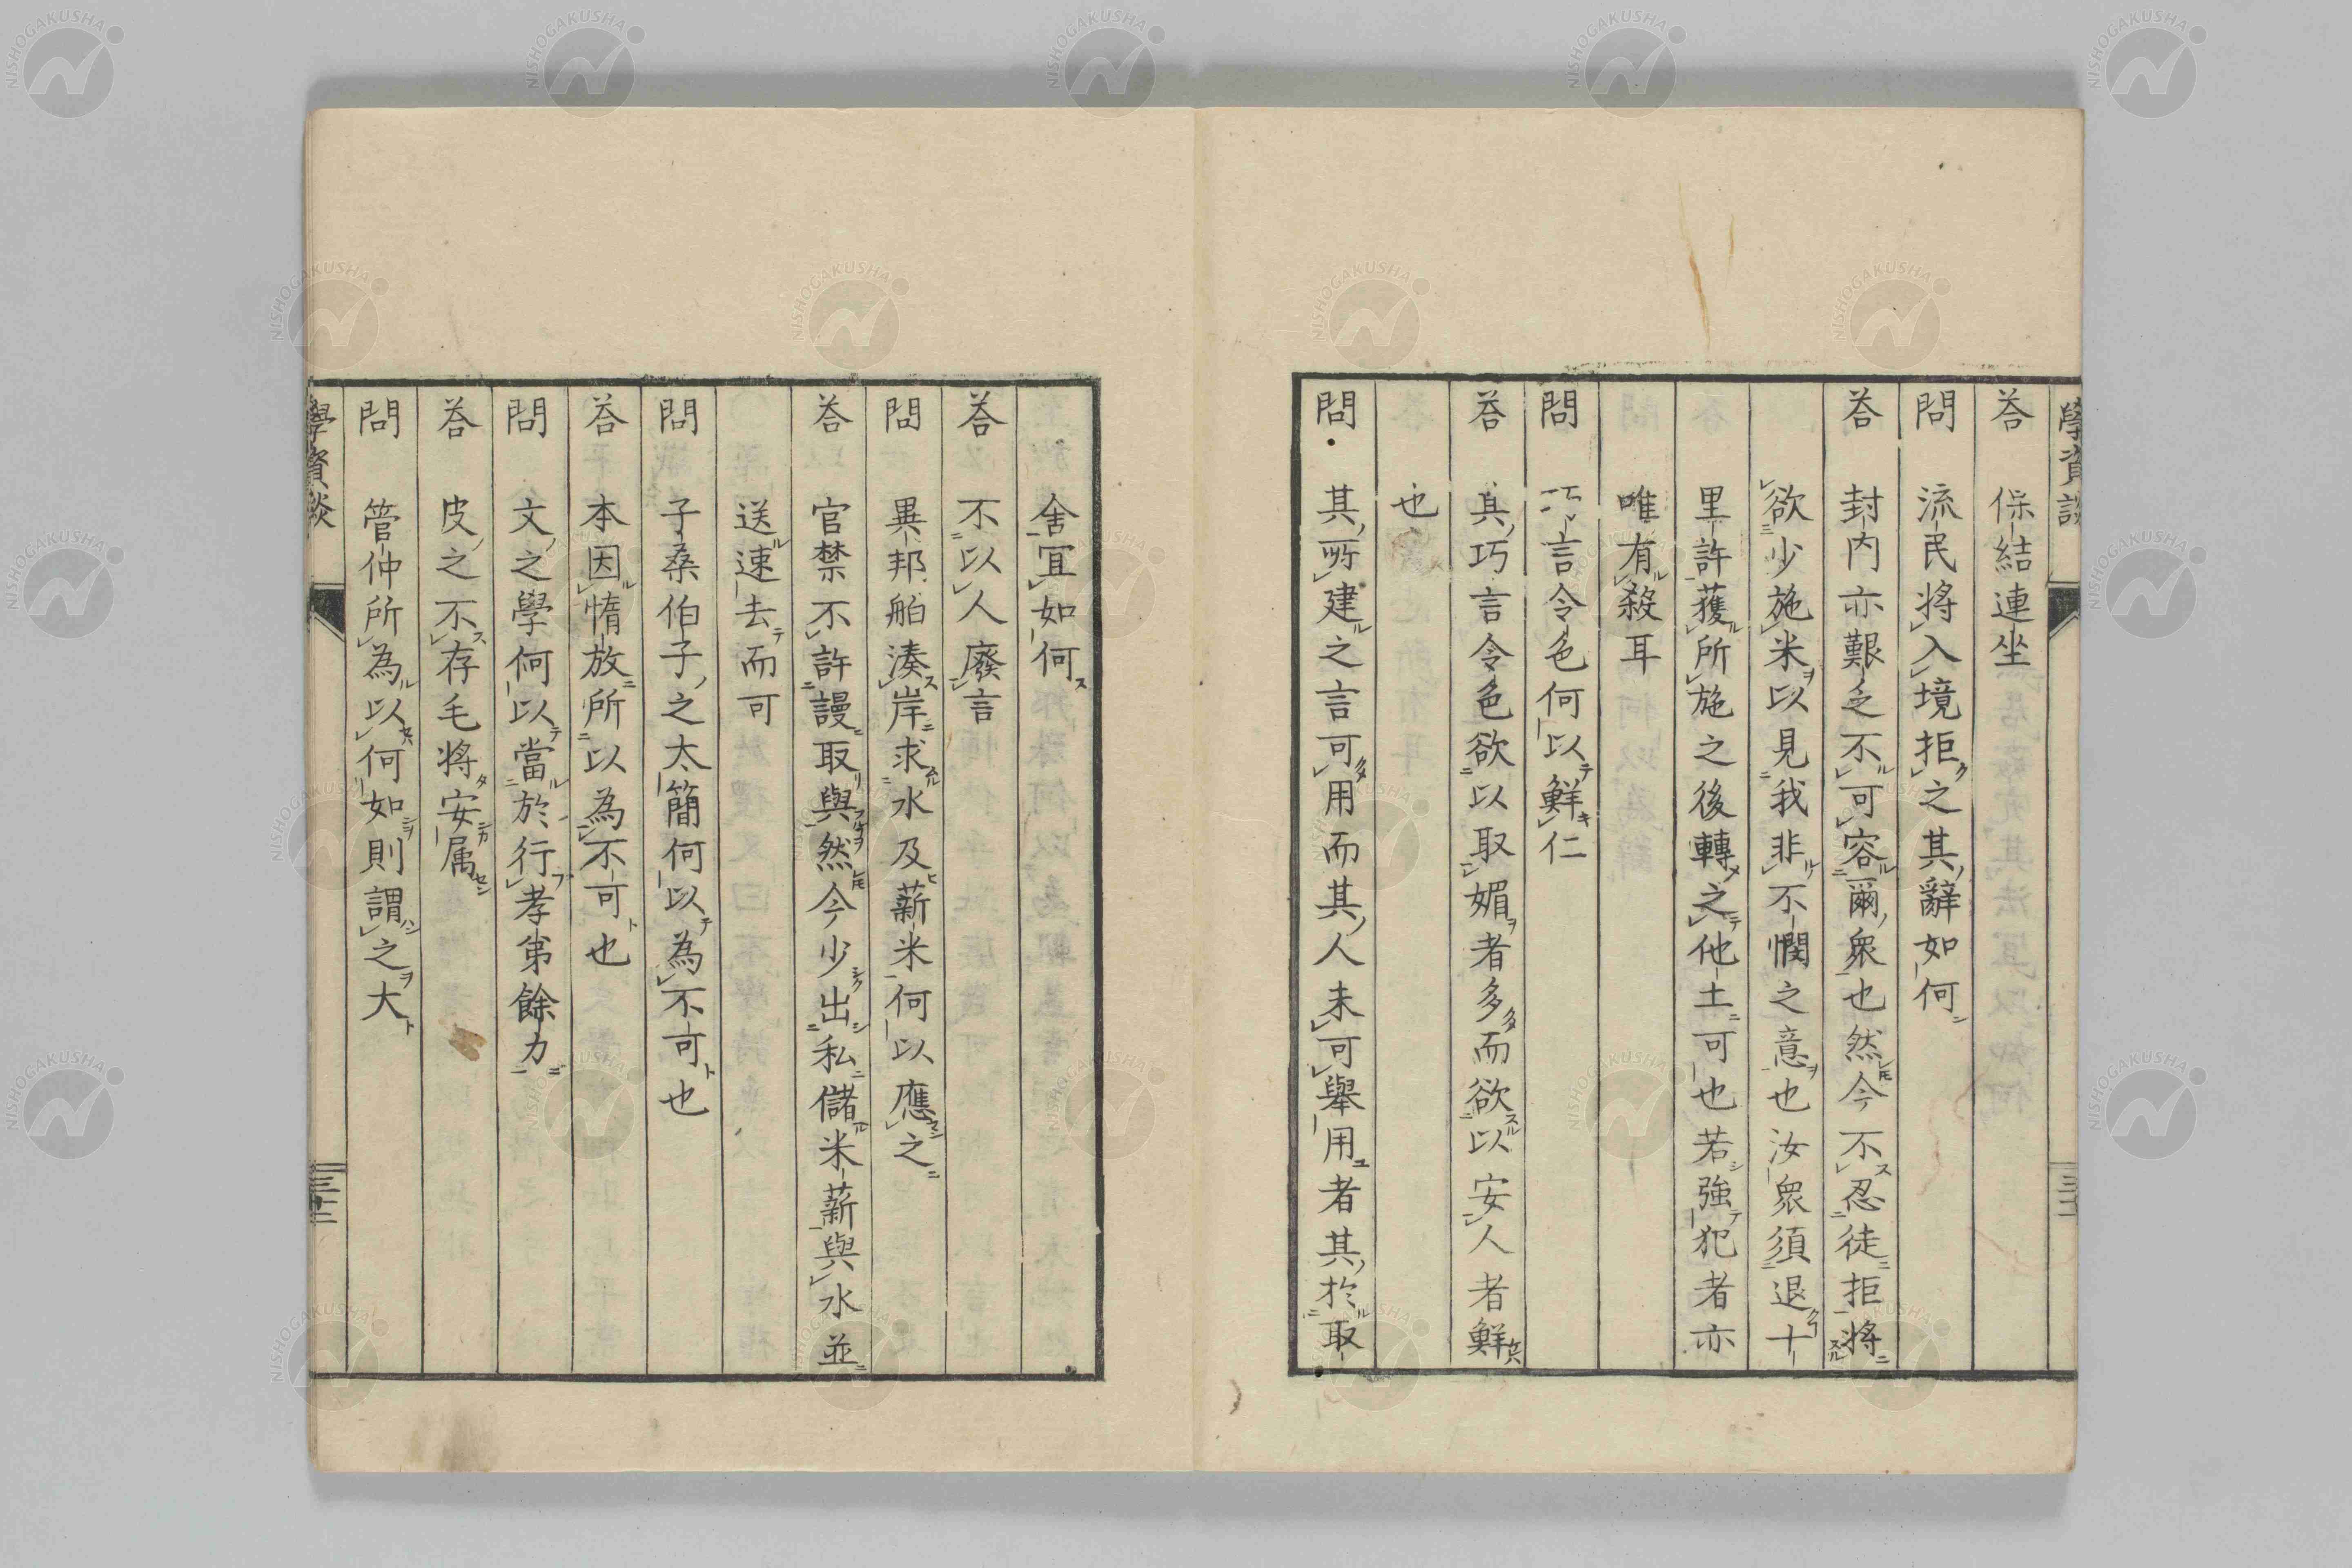 答 保結連坐
問 流民將入境拒之其辭如何
答 封内亦艱乏不可容爾衆也然今不忍徒拒將
欲少施米以見我非不憫之意也汝衆須退十
里許獲所施之後轉之他土可也若強犯者亦
唯有殺耳
問 巧言令色何以鮮仁
答 其巧言令色欲以取媚者多而欲以安人者鮮
也
問 其所建之言可用而其人未可舉用者其於取
舍宜如何
答 不以人廢言
問 異邦舶湊岸求水及薪米何以應之
答 官禁不許謾取與然今少出私儲米薪與水並
送速去而可
問 子桑伯子之太簡何以為不可也
答 本因惰放所以為不可也
問 文之學何以當於行孝弟餘力
答 皮之不存毛將安属
問 管仲所為以何如則謂之大
學資談
三十二
NISHOGAKUSHA